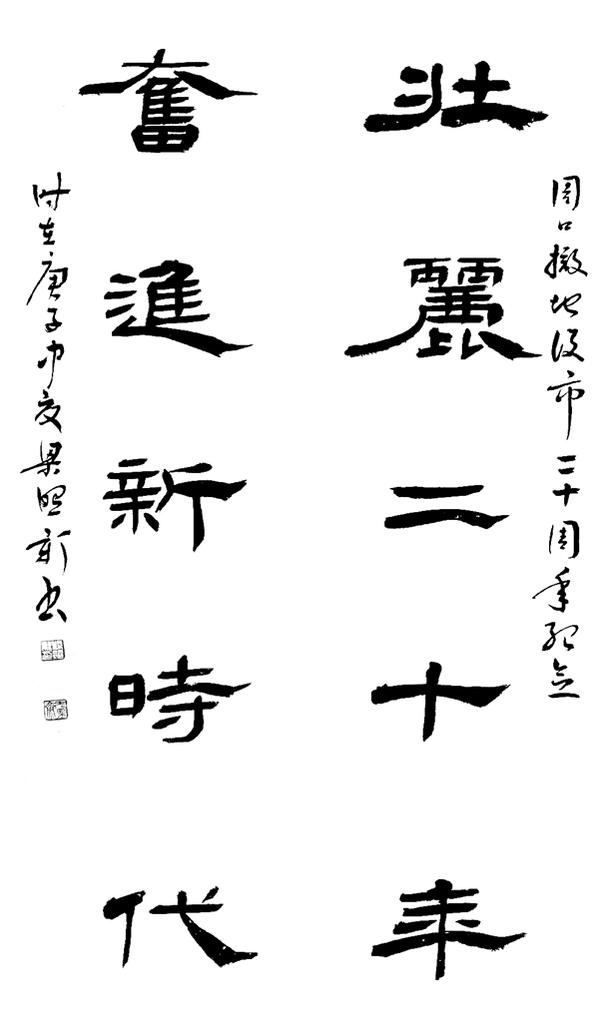 周口撤地设市二十周年纪念
壯麗二十年
奮進新時代
时在庚子中夏梁照新书